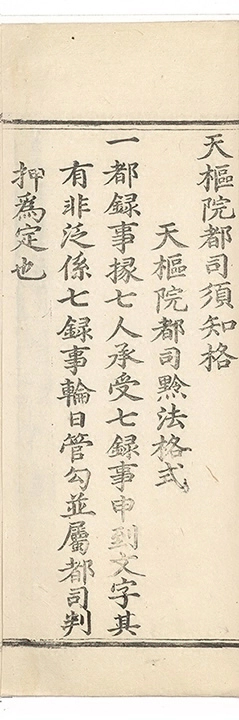 天樞院都司須知格
天樞院都司黙法格式
一都録事掾七人承受七録事申到文字其
有非泛係七録事輪日管勾並屬都司判
押為定也